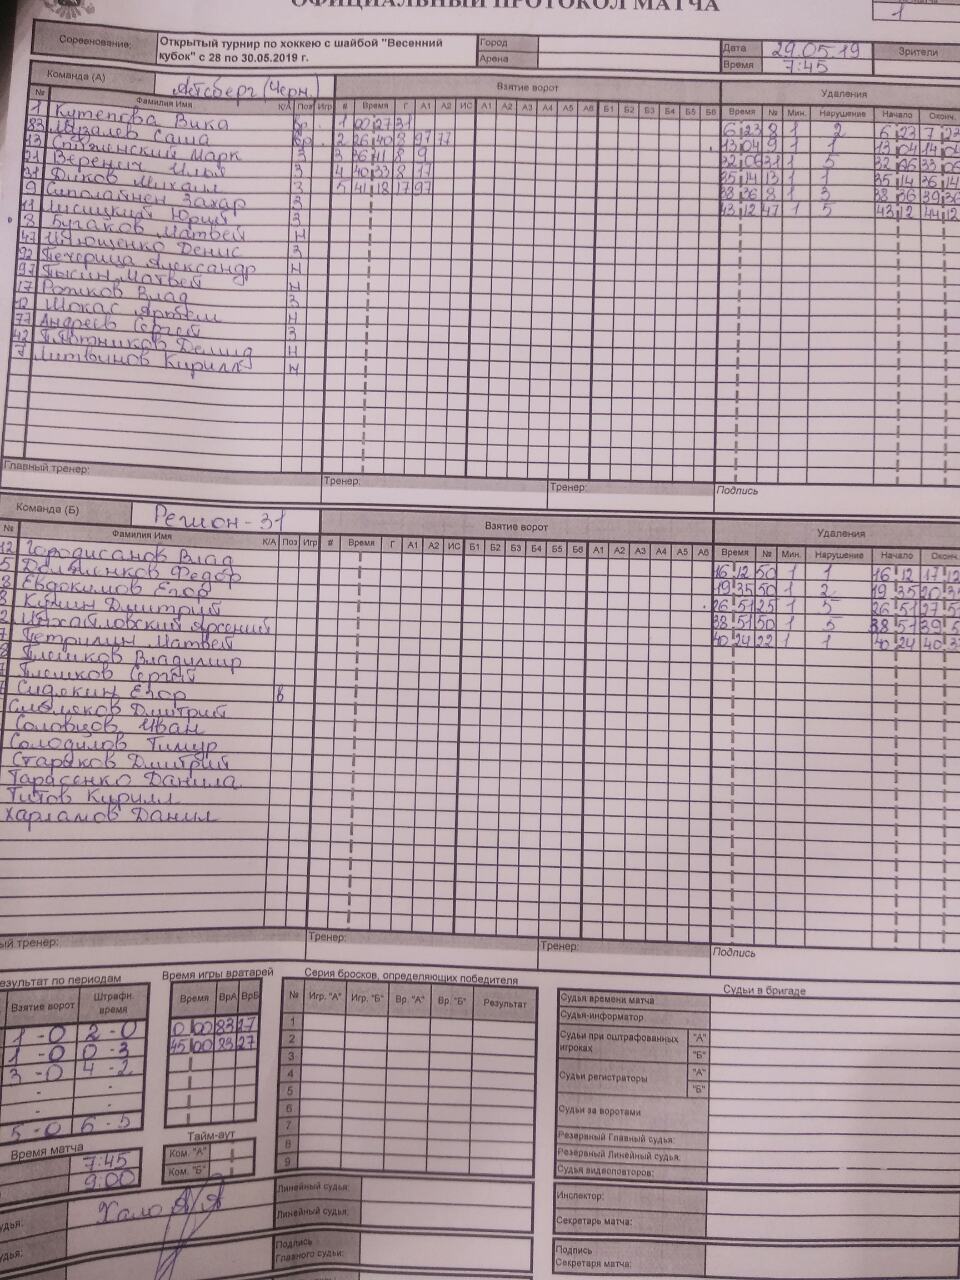 ОФИЦИАЛЬНЫЙ ПРОТОКОЛ МАТЧА
1
Соревнование: Открытый турнир по хоккею с шайбой "Весенний кубок" с 28 по 30.05.2019 г. Город Арена Дата 29.05.19 Время 7:45 Зрители
Команда (А) Айсберг (Черн.) Взятие ворот Удаления
№ Фамилия Имя К/А Поз Игр # Время Г А1 А2 ИС А1 А2 А3 А4 А5 А6 Б1 Б2 Б3 Б4 Б5 Б6 Время № Мин. Нарушение Начало Оконч.
1 Кутепова Вика вр. 1 00 27 31 6 23 8 1 2 6 23 7 23
83 Мазалев Саша вр. 2 26 40 8 97 77 13 04 9 1 1 13 04 14 04
13 Марк З 3 36 11 8 9 32 06 31 1 5 32 06 33 06
21 Веренич Илья З 4 40 33 8 17 35 14 13 1 1 35 14 36 14
31 Диков Михаил З 5 41 18 17 97 38 36 8 1 3 38 36 39 36
9 Захар З 43 12 47 1 5 43 12 44 12
11 Лисицкий Юрий З
8 Бугаков Матвей Н
47 Илющенко Денис З
92 Печерица Александр Н
97 Лысин Матвей Н
17 Рожков Влад З
12 Шокас Артём Н
77 Андреев Сергей З
42 Плотников Демид Н
7 Литвинов Кирилл Н
Главный тренер: Тренер: Тренер: Подпись
Команда (Б) Регион-31 Взятие ворот Удаления
№ Фамилия Имя К/А Поз Игр # Время Г А1 А2 ИС Б1 Б2 Б3 Б4 Б5 Б6 А1 А2 А3 А4 А5 А6 Время № Мин. Нарушение Начало Оконч.
Влад 16 12 50 1 1 16 12 17 12
Федор 19 35 50 1 2 19 35 20 3
Евдокимов Егор 26 51 25 1 5 26 51 27 5
Кунин Дмитрий 38 51 50 1 5 38 51 39 5
Михайловский Арсений 40 24 22 1 1 40 24 40 3
Петрилин Матвей
Плешков Владимир
Плешков Сергей
Сидякин Егор в
Дмитрий
Соловцов Иван
Солодилов Тимур
Стариков Дмитрий
Тарасенко Данила
Титов Кирилл
Харламов Данил
ый тренер: Тренер: Тренер: Подпись
езультат по периодам
Взятие ворот Штрафн. время
1-0 2-0
1-0 0-3
3-0 4-2
-
-
5-0 6-5
Время игры вратарей
Время ВрА ВрБ
0 00 83 27
45 00 83 27
Серия бросков, определяющих победителя
№ Игр. "А" Игр. "Б" Вр. "А" Вр. "Б" Результат
1
2
3
4
5
6
7
8
9
Судьи в бригаде
Судья времени матча
Судья-информатор
Судьи при оштрафованных игроках "А" "Б"
Судьи регистраторы "А" "Б"
Судьи за воротами
Резервный Главный судья:
Резервный Линейный судья:
Судья видеоповторов:
Время матча
7:45
9:00
Тайм-аут
Ком. "А"
Ком. "Б"
удья:
удья:
Линейный судья:
Линейный судья:
Подпись Главного судьи:
Инспектор:
Секретарь матча:
Подпись Секретаря матча: